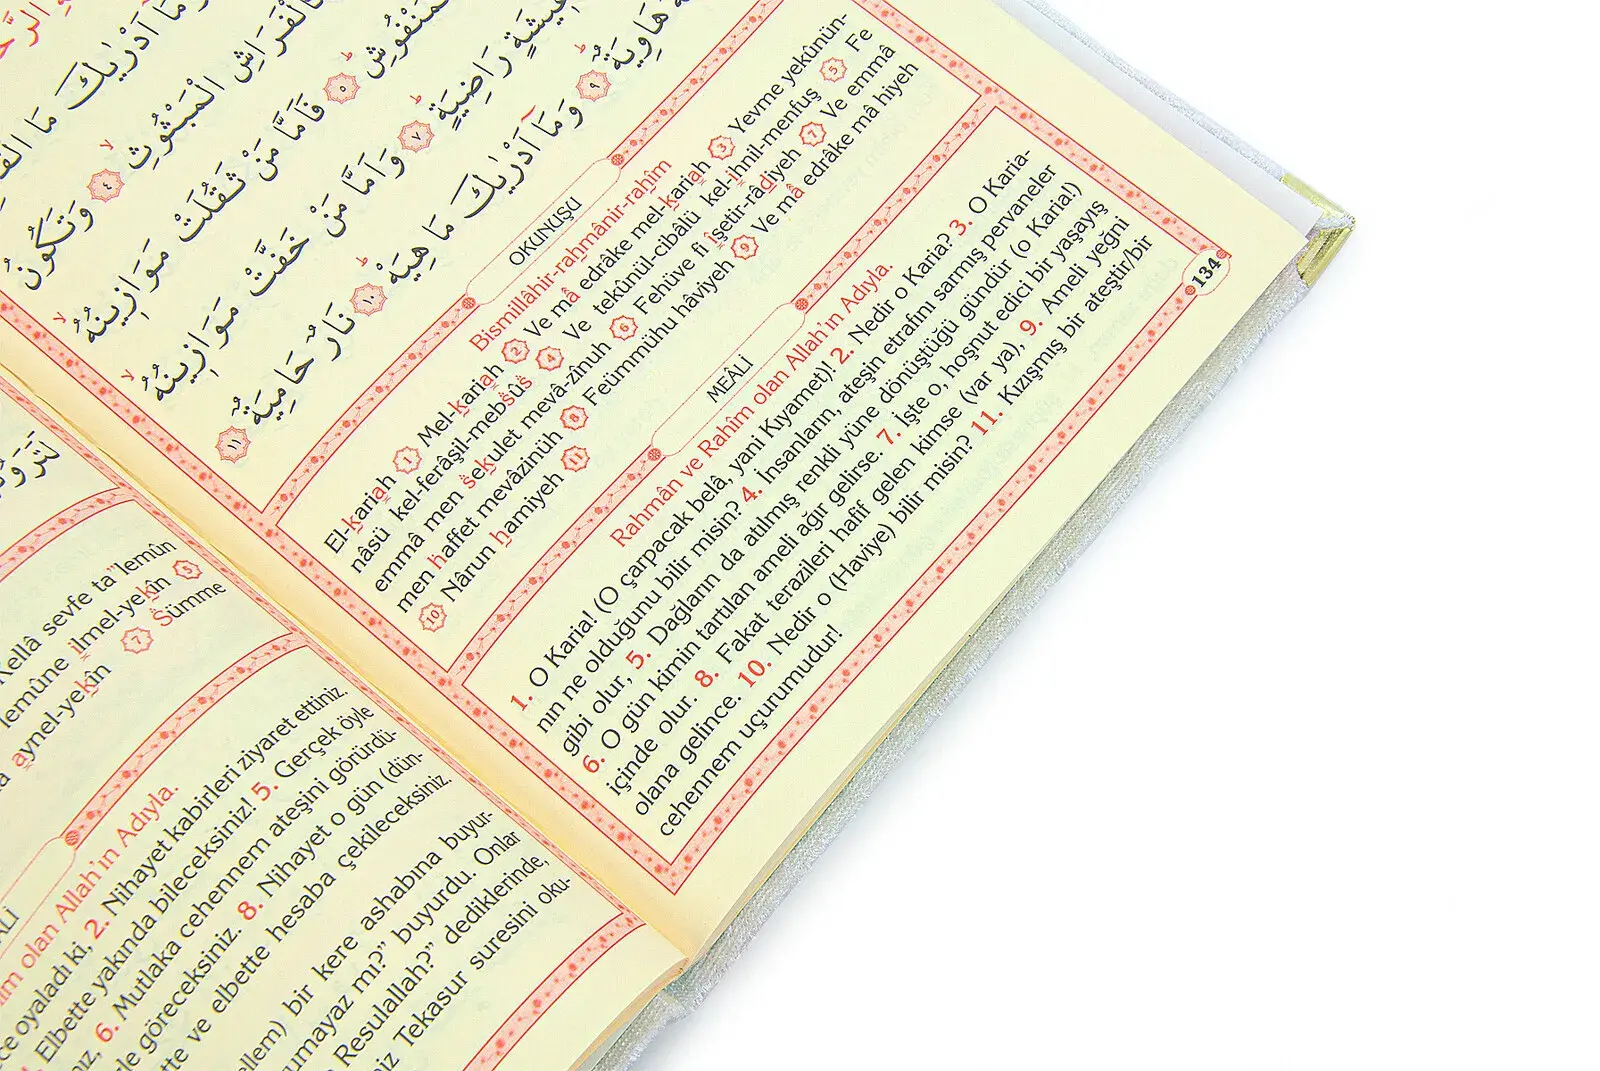 الرَّحْ
وَمَا اَدْرٰيكَ مَا الْقَ
كَالْفَرَاشِ الْمَبْثُوثِ ٤ وَتَكُونُ
الْمَنْفُوشِ ٥ فَاَمَّا مَنْ ثَقُلَتْ مَوَازِينُهُ
عِيشَةٍ رَاضِيَةٍ ٧ وَاَمَّا مَنْ خَفَّتْ مَوَازِينُهُ
هَاوِيَةٌ ٩ وَمَا اَدْرٰيكَ مَا هِيَهْ ١٠ نَارٌ حَامِيَةٌ ١١
OKUNUŞU
Bismillâhir-rahmânir-rahîm
El-kariah 1 Mel-kariah 2 Ve mâ edrâke mel-kariah 3 Yevme yekûnün-
nâsü kel-ferâşil-mebsûs 4 Ve tekûnül-cibâlü kel-ihnil-menfuş 5 Fe
emmâ men sekulet mevâ-zînuh 6 Fehüve fî îşetir-râdiyeh 7 Ve emmâ
men haffet mevâzinüh 8 Feümmühu hâviyeh 9 Ve mâ edrâke mâ hiyeh
10 Nârun hamiyeh 11
MEÂLİ
Rahmân ve Rahîm olan Allah'ın Adıyla.
1. O Karia! (O çarpacak belâ, yani Kıyamet)! 2. Nedir o Karia? 3. O Karia-
nın ne olduğunu bilir misin? 4. İnsanların, ateşin etrafını sarmış pervaneler
gibi olur, 5. Dağların da atılmış renkli yüne dönüştüğü gündür (o Karia!)
6. O gün kimin tartılan ameli ağır gelirse. 7. İşte o, hoşnut edici bir yaşayış
içinde olur. 8. Fakat terazileri hafif gelen kimse (var ya), 9. Ameli yeğni
olana gelince. 10. Nedir o (Haviye) bilir misin? 11. Kızışmış bir ateştir/bir
cehennem uçurumudur!
134
لَتَرَوُنَّ
Kellâ sevfe ta'lemûn
lemûne ilmel-yekîn 5
aynel-yekîn 7 Sümme
ALİ
îm olan Allah'ın Adıyla.
ce oyaladı ki, 2. Nihayet kabirleri ziyaret ettiniz.
Elbette yakında bileceksiniz! 5. Gerçek öyle
ız, 6. Mutlaka cehennem ateşini görürdü-
le göreceksiniz. 8. Nihayet o gün (dün-
tte ve elbette hesaba çekileceksiniz.
ellem) bir kere ashabına buyur-
umayaz mı?" buyurdu. Onlar
Resulallah?" dediklerinde,
iz Tekasur suresini oku-